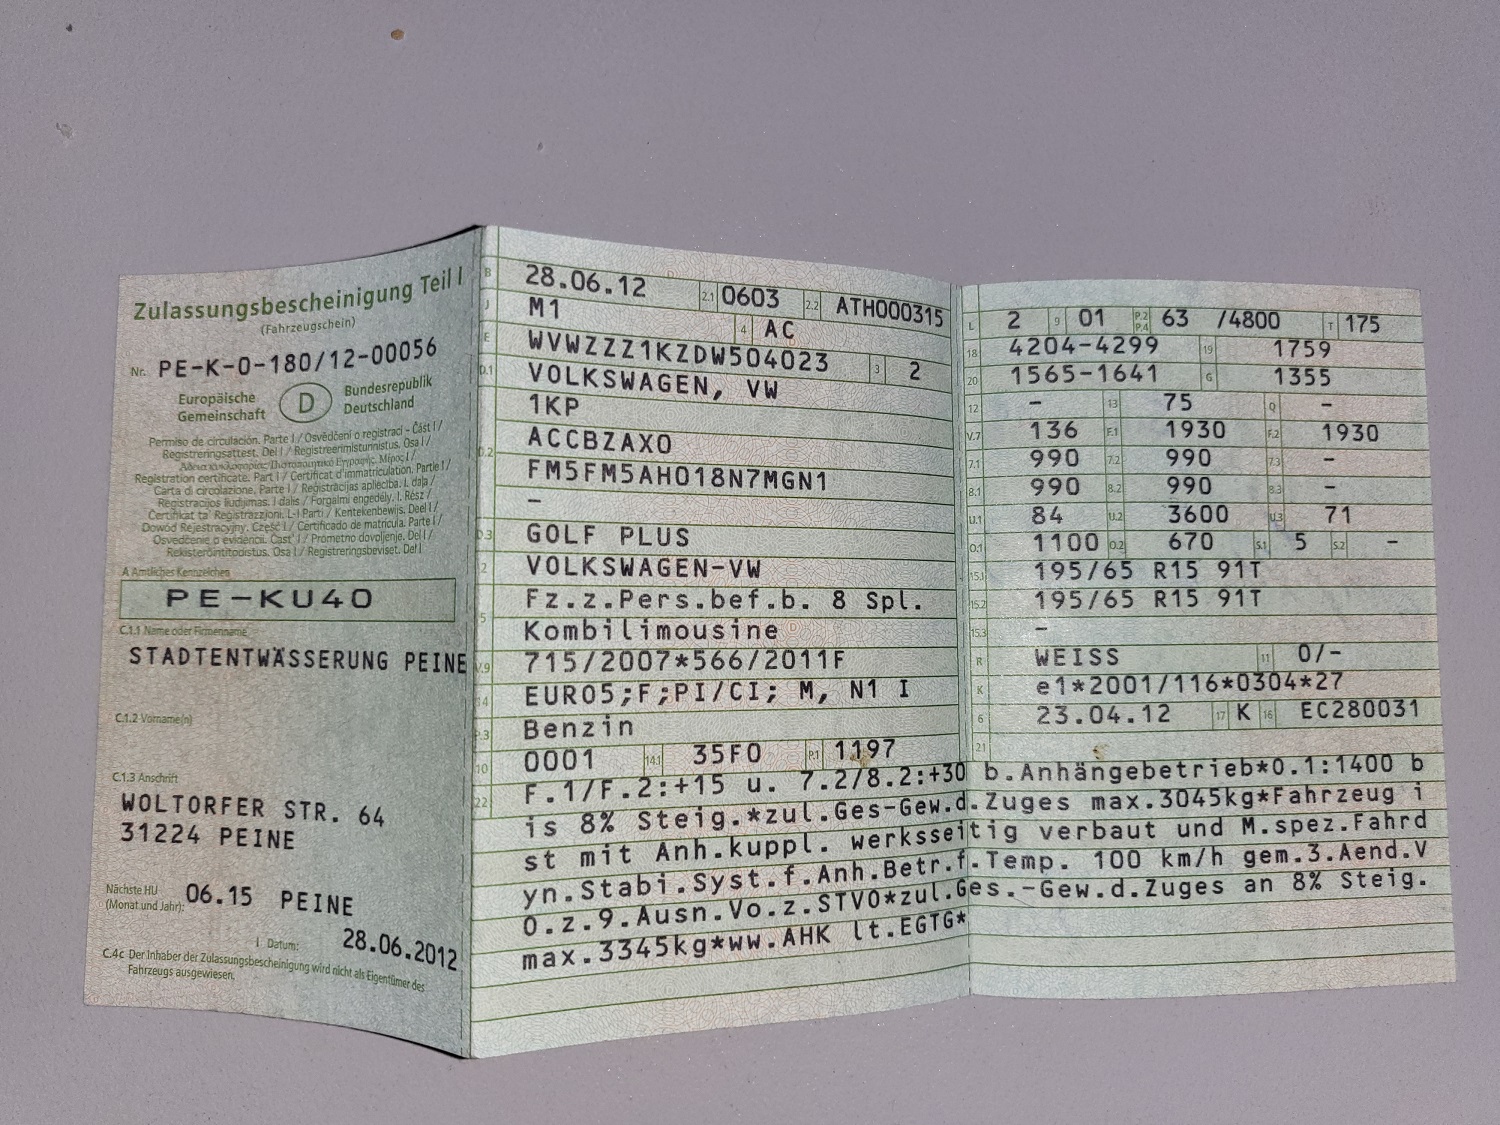 Zulassungsbescheinigung Teil I
(Fahrzeugschein)
Nr. PE-K-0-180/12-00056
Europäische Gemeinschaft D Bundesrepublik Deutschland
Permiso de circulación. Parte I / Osvědčení o registraci - Část I /
Registreringsattest. Del I / Registreerimistunnistus. Osa I /
Registration certificate. Part I / Certificat d'immatriculation. Partie I /
Carta di circolazione. Parte I / Reģistrācijas apliecība. I. daļa /
Registracijos liudijimas. I dalis / Forgalmi engedély. I. Rész /
Ċertifikat ta' Reġistrazzjoni. L-I Parti / Kentekenbewijs. Deel I /
Dowód Rejestracyjny. Część I / Certificado de matrícula. Parte I /
Osvedčenie o evidencii. Časť I / Prometno dovoljenje. Del I /
Rekisteröintitodistus. Osa I / Registreringsbeviset. Del I
A Amtliches Kennzeichen
PE-KU40
C.1.1 Name oder Firmenname
STADTENTWÄSSERUNG PEINE
C.1.2 Vorname(n)
C.1.3 Anschrift
WOLTORFER STR. 64
31224 PEINE
Nächste HU (Monat und Jahr): 06.15 PEINE
I Datum: 28.06.2012
C.4c Der Inhaber der Zulassungsbescheinigung wird nicht als Eigentümer des
Fahrzeugs ausgewiesen.
B 28.06.12 2.1 0603 2.2 ATH000315
J M1 4 AC
E WVWZZZ1KZDW504023 3 2
D.1 VOLKSWAGEN, VW
1KP
D.2 ACCBZAX0
FM5FM5AH018N7MGN1
-
D.3 GOLF PLUS
2 VOLKSWAGEN-VW
5 Fz.z.Pers.bef.b. 8 Spl.
Kombilimousine
V.9 715/2007*566/2011F
14 EURO5;F;PI/CI; M, N1 I
P.3 Benzin
10 0001 14.1 35F0 P.1 1197
L 2 9 01 P.2 P.4 63 /4800 T 175
18 4204-4299 19 1759
20 1565-1641 G 1355
12 - 13 75 Q -
V.7 136 F.1 1930 F.2 1930
7.1 990 7.2 990 7.3 -
8.1 990 8.2 990 8.3 -
U.1 84 U.2 3600 U.3 71
O.1 1100 O.2 670 S.1 5 S.2 -
15.1 195/65 R15 91T
15.2 195/65 R15 91T
15.3 -
R WEISS 11 0/-
K e1*2001/116*0304*27
6 23.04.12 17 K 16 EC280031
21
22 F.1/F.2:+15 u. 7.2/8.2:+30 b.Anhängebetrieb*O.1:1400 b
is 8% Steig.*zul.Ges-Gew.d.Zuges max.3045kg*Fahrzeug i
st mit Anh.kuppl. werksseitig verbaut und M.spez.Fahrd
yn.Stabi.Syst.f.Anh.Betr.f.Temp. 100 km/h gem.3.Aend.V
O.z.9.Ausn.Vo.z.STVO*zul.Ges.-Gew.d.Zuges an 8% Steig.
max.3345kg*ww.AHK lt.EGTG*